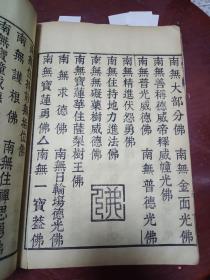 南無大部分佛　南無金面光佛
南無善稱德威帝釋威幢光佛
南無普光威德佛　南無普德光佛
南無精進伏怨勇佛
南無住持地力進法佛
南無無礙藥樹威德佛
南無寶蓮華住薩梨樹王佛
南無求德佛　南無日輪場德光佛
南無寶蓮勇佛　南無一寶蓋佛
南無護根佛
南無住禪思勇佛